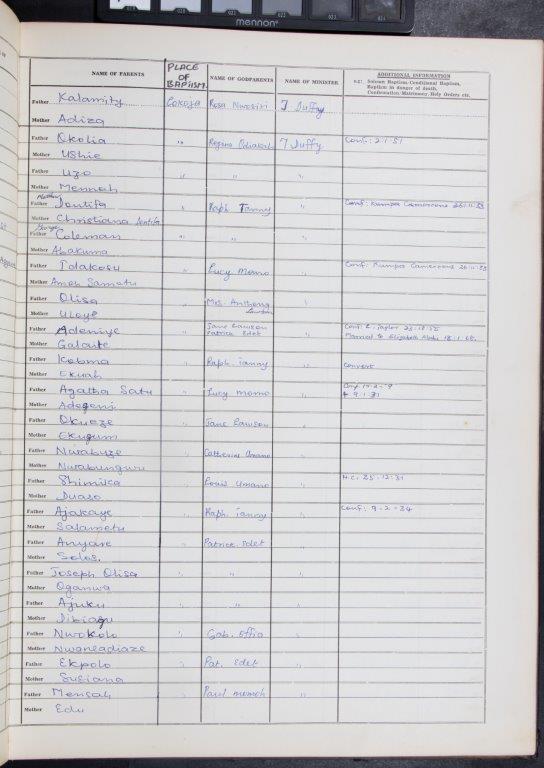 mennon
PLACE OF BAPTISM
NAME OF PARENTS NAME OF GODPARENTS NAME OF MINISTER
ADDITIONAL INFORMATION
e.g.: Solemn Baptism, Conditional Baptism,
Baptism in danger of death,
Confirmation, Matrimony, Holy Orders etc.
Father Kalamity Lokoja Rosa J Duffy
Mother Adiza
Father Okolia " Regina J Duffy Conf: 2.1.51
Mother Ushie
Father Uzo " " "
Mother Mennah
Father Jentifa " Raph Ianny " Conf: Kumpa Cameroons
Mother Christiana Jentifa
Father George Coleman " " "
Mother Abakuma
Father Idakosu " Lucy Momo " Conf: Kumpa Cameroons
Mother Ameh Samatu
Father Olisa " Mrs. Anthony Lawson "
Mother Uloye
Father Adeniye " Jane Lawson Patrick Edet "
Married to Elizabeth 18.1.68.
Mother Galaite
Father Kobina " Raph. Ianny " Convert
Mother Ekuah
Father Agatha Satu " Lucy Momo "
Mother Adeyeni
Father Okueze " Jane Lawson "
Mother Ekugum
Father Nwabuze " Catherine Umamo "
Mother Nwabungwu
Father Shimika " Louis Umano " H.C. 25.12.31
Mother Duaso
Father Ajakaye " Raph. Ianny " Conf: 9.2.34
Mother Salametu
Father Anyare " Patrick Edet "
Mother Solos.
Father Joseph Olisa " " "
Mother Oganwa
Father Ajuku " " "
Mother Jibiagu
Father Nwokolo " Gab. Effia "
Mother Nwaneadiaze
Father Ekpolo " Pat. Edet "
Mother Susiana
Father Mensah " Paul Momoh "
Mother Edu